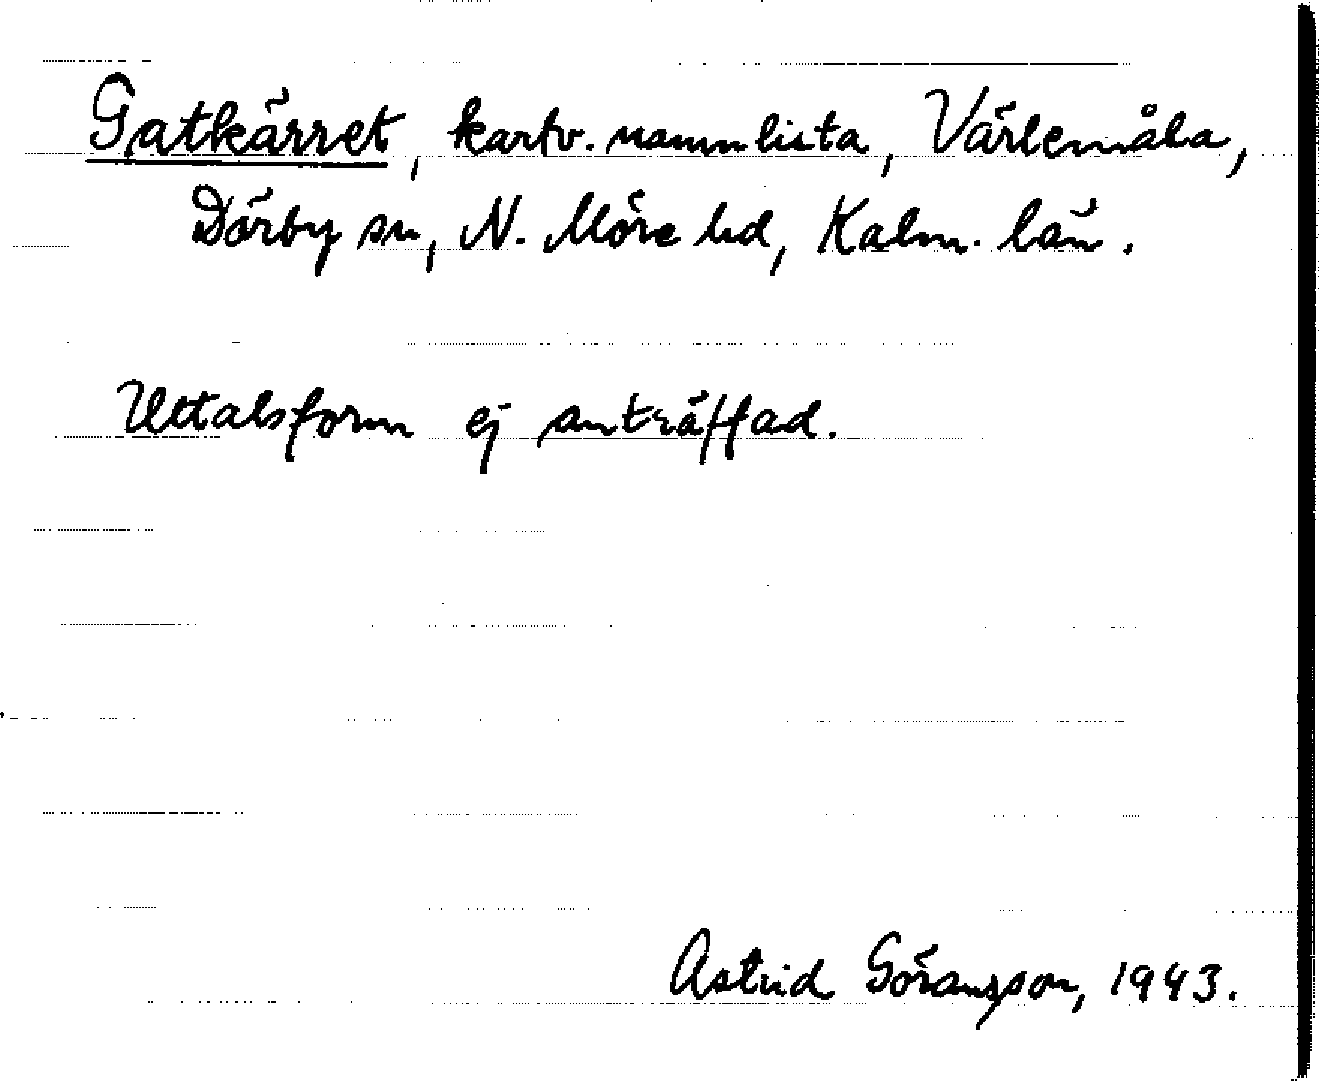 Gatkärret, kartv. namnlista, Värlemåla,
Dörby sn, N. Möre hd, Kalm. län.
Uttalsform ej anträffad.
Astrid Göransson, 1943.